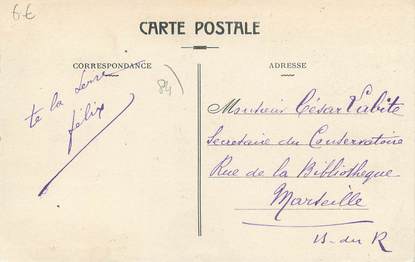 6€
CARTE POSTALE
CORRESPONDANCE
ADRESSE
84
te la serre
félix
Monsieur César Vabite
Secretaire du Conservatoire
Rue de la Bibliotheque
Marseille
B-du R